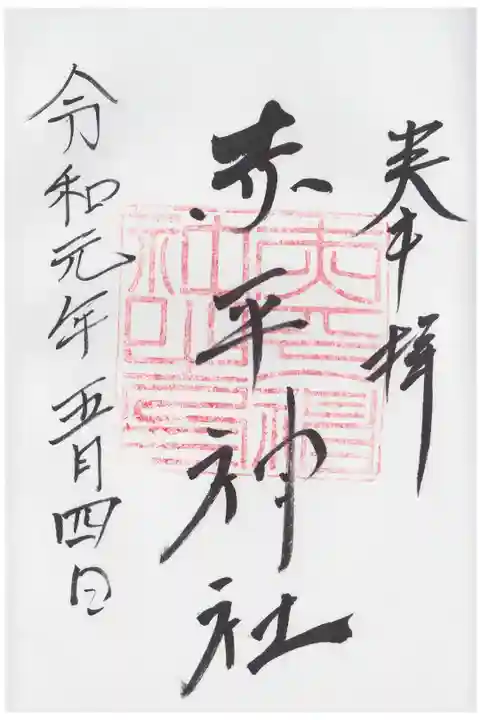 奉拝
赤平神社
令和元年五月四日